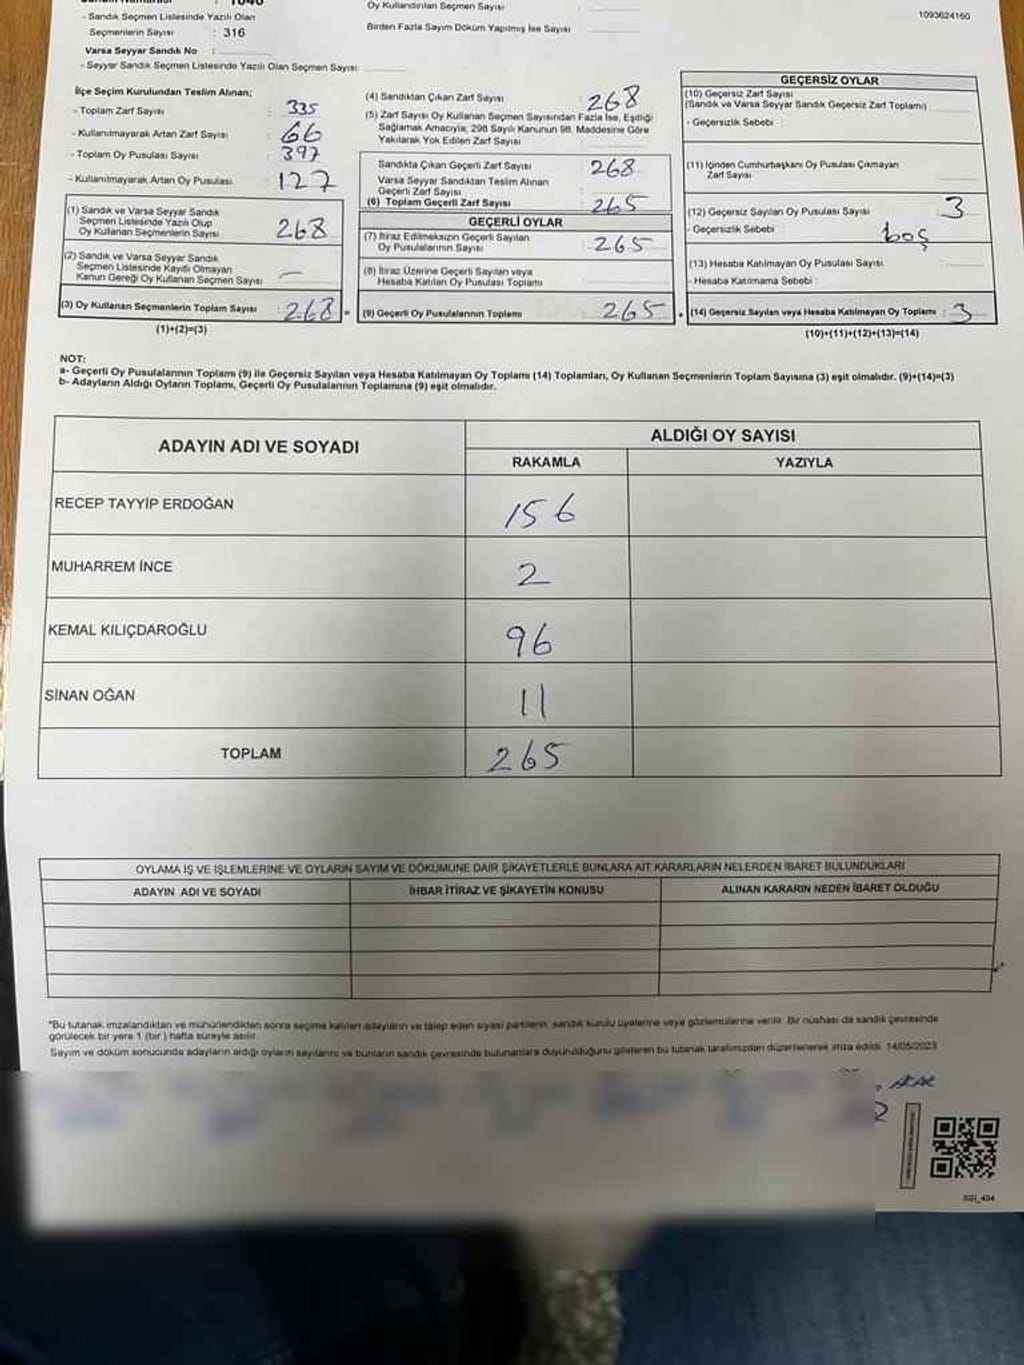 1093624160
- Sandık Seçmen Listesinde Yazılı Olan
Seçmenlerin Sayısı : 316
Varsa Seyyar Sandık No :
- Seyyar Sandık Seçmen Listesinde Yazılı Olan Seçmen Sayısı:
Oy Kullandırılan Seçmen Sayısı :
Birden Fazla Sayım Döküm Yapılmış İse Sayısı :
İlçe Seçim Kurulundan Teslim Alınan;
- Toplam Zarf Sayısı : 335
- Kullanılmayarak Artan Zarf Sayısı : 66
- Toplam Oy Pusulası Sayısı : 397
- Kullanılmayarak Artan Oy Pusulası : 127
(1) Sandık ve Varsa Seyyar Sandık
Seçmen Listesinde Yazılı Olup
Oy Kullanan Seçmenlerin Sayısı : 268
(2) Sandık ve Varsa Seyyar Sandık
Seçmen Listesinde Kayıtlı Olmayan
Kanun Gereği Oy Kullanan Seçmen Sayısı : —
(3) Oy Kullanan Seçmenlerin Toplam Sayısı : 268 =
(1)+(2)=(3)
(4) Sandıktan Çıkan Zarf Sayısı : 268
(5) Zarf Sayısı Oy Kullanan Seçmen Sayısından Fazla İse, Eşitliği
Sağlamak Amacıyla, 298 Sayılı Kanunun 98. Maddesine Göre
Yakılarak Yok Edilen Zarf Sayısı :
Sandıkta Çıkan Geçerli Zarf Sayısı : 268
Varsa Seyyar Sandıktan Teslim Alınan
Geçerli Zarf Sayısı :
(6) Toplam Geçerli Zarf Sayısı : 265
GEÇERLİ OYLAR
(7) İtiraz Edilmeksizin Geçerli Sayılan
Oy Pusulalarının Sayısı : 265
(8) İtiraz Üzerine Geçerli Sayılan veya
Hesaba Katılan Oy Pusulası Toplamı :
(9) Geçerli Oy Pusulalarının Toplamı : 265 +
GEÇERSİZ OYLAR
(10) Geçersiz Zarf Sayısı
(Sandık ve Varsa Seyyar Sandık Geçersiz Zarf Toplamı) :
- Geçersizlik Sebebi :
(11) İçinden Cumhurbaşkanı Oy Pusulası Çıkmayan
Zarf Sayısı :
(12) Geçersiz Sayılan Oy Pusulası Sayısı : 3
- Geçersizlik Sebebi : boş
(13) Hesaba Katılmayan Oy Pusulası Sayısı :
- Hesaba Katılmama Sebebi :
(14) Geçersiz Sayılan veya Hesaba Katılmayan Oy Toplamı : 3
(10)+(11)+(12)+(13)=(14)
NOT:
a- Geçerli Oy Pusulalarının Toplamı (9) ile Geçersiz Sayılan veya Hesaba Katılmayan Oy Toplamı (14) Toplamları, Oy Kullanan Seçmenlerin Toplam Sayısına (3) eşit olmalıdır. (9)+(14)=(3)
b- Adayların Aldığı Oyların Toplamı, Geçerli Oy Pusulalarının Toplamına (9) eşit olmalıdır.
ADAYIN ADI VE SOYADI
ALDIĞI OY SAYISI
RAKAMLA YAZIYLA
RECEP TAYYİP ERDOĞAN 156
MUHARREM İNCE 2
KEMAL KILIÇDAROĞLU 96
SİNAN OĞAN 11
TOPLAM 265
OYLAMA İŞ VE İŞLEMLERİNE VE OYLARIN SAYIM VE DÖKÜMÜNE DAİR ŞİKAYETLERLE BUNLARA AİT KARARLARIN NELERDEN İBARET BULUNDUKLARI
ADAYIN ADI VE SOYADI İHBAR İTİRAZ VE ŞİKAYETİN KONUSU ALINAN KARARIN NEDEN İBARET OLDUĞU
*Bu tutanak imzalandıktan ve mühürlendikten sonra seçime katılan adayların ve talep eden siyasi partilerin sandık kurulu üyelerine veya gözlemcilerine verilir. Bir nüshası da sandık çevresinde
görülecek bir yere 1 (bir) hafta süreyle asılır.
Sayım ve döküm sonucunda adayların aldığı oyların sayılarını ve bunların sandık çevresinde bulunanlara duyurulduğunu gösteren bu tutanak tarafımızdan düzenlenerek imza edildi. 14/05/2023